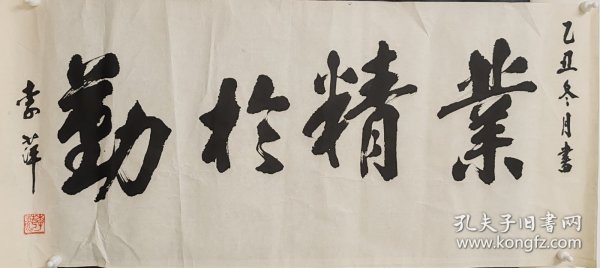 乙丑冬月書
業精於勤
李萍
孔夫子旧書网
www.kongfz.com